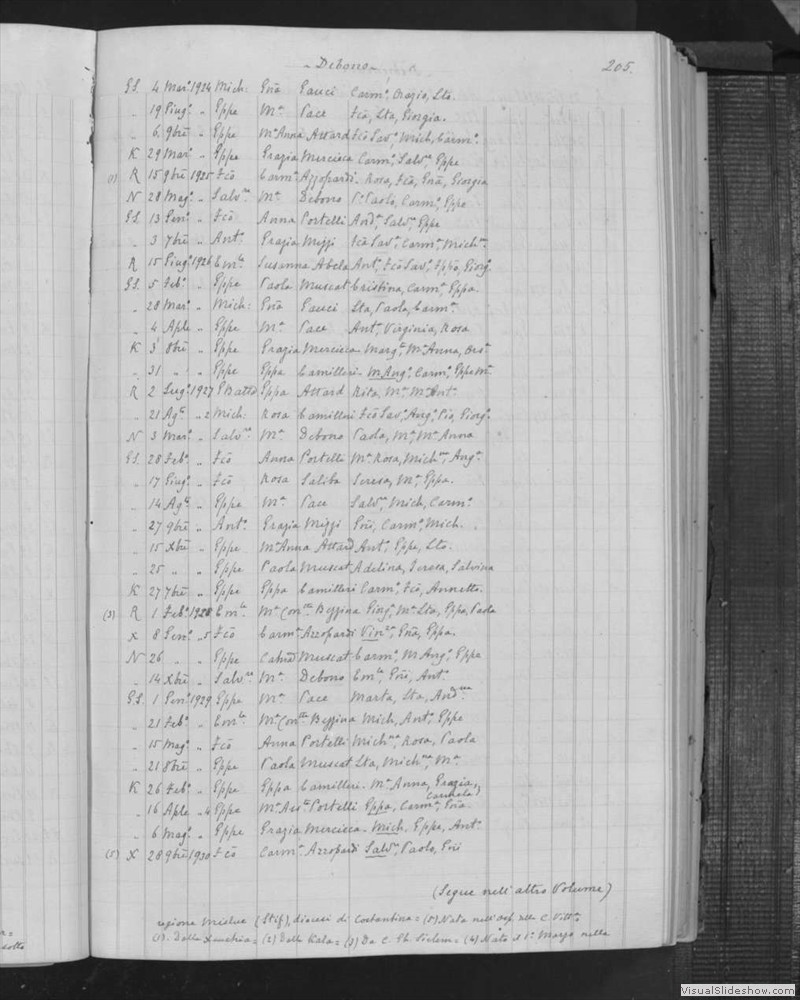 - Debono -
205.
GS. 4 Mar.° 1924 Mich: Gña Gauci Carm.ª Orazio, Sta.
" 19 Giug.° " Gppe M.ª Pace Fcõ, Sta, Giorgia.
" 6 9bre " Gppe M.ªAnna Attard Fcõ Sav.° Mich, Carm.°
K 29 Mar.° " Gppe Grazia Mercieca Carm.° Salv.ra Gppe
(1) R 15 9bre 1925 Fcõ Carm.ª Azzopardi Rosa, Fcã, Gña, Giorgia
N 28 Mag.° " Salv.re M.ª Debono P. Paolo, Carm.° Gppe
GS 13 Gen.° " Fcõ Anna Portelli And.ª Salv.° Gppe
" 3 7bre " Ant.° Grazia Mizzi Fcõ Sav.° Carm.° Mich.na
R 15 Giug.° 1926 Em.le Susanna Abela Ant.° Fcõ Sav.° Gppa, Giorg.°
GS 5 Feb.° " Gppe Paola Muscat Cristina, Carm.ª Gppa.
" 28 Mar.° " Mich: Gña Gauci Sta, Paola, Carm.ª
" 4 Aple " Gppe M.ª Pace Ant.ª Virginia, Rosa
K 3 8bre " Gppe Grazia Mercieca Marg.ª M.ªAnna,
" 31 " " Gppe Gppa Camilleri M.Ang.ª Carm.ª Gppe M.ª
R 2 Lug.° 1927 G Batta Gppa Attard Rita, M.ª M.ªAnt.ª
" 21 Ag.to " 2 Mich: Rosa Camilleri Fcõ Sav.° Ang.° Pio, Giorg.°
N 3 Mar.° " Salv.re M.ª Debono Paola, M.ª M.ªAnna
GS. 28 Feb.° " Fcõ Anna Portelli M.ªRosa, Mich.na Ang.ª
" 17 Giug.° " Fcõ Rosa Saliba Teresa, M.ª Gppa.
" 14 Ag.to " Gppe M.ª Pace Salv.° Mich, Carm.°
" 27 9bre " Ant.° Grazia Mizzi Gni, Carm.° Mich.
" 15 Xbre " Gppe M.ªAnna Attard Ant.° Gppe, Sto.
" 25 " " Gppe Paola Muscat Adelina, Teresa, Salvina
K 27 7bre " Gppe Gppa Camilleri Carm.° Fcõ, Annetto.
(3) R 1 Feb.° 1928 Em.le M.ªCon.tta Bezzina Ging.ª M.ªSta, Gppa, Paola
X 8 Gen.° " 5 Fcõ Carm.ª Azzopardi Vin.za Gña, Gppa.
N 26 " " Gppe Muscat Carm.° M.Ang.° Gppe
" 14 Xbre " Salv.re M.ª Debono Em.le Gni, Ant.°
GS. 1 Gen.° 1929 Gppe M.ª Pace Marta, Sta, And.na
" 21 Feb.° " Em.le M.ªCon.tta Bezzina Mich, Ant.° Gppe
" 15 Mag.° " Fcõ Anna Portelli Mich.na Rosa, Paola
" 21 8bre " Gppe Paola Muscat Sta, Mich.na M.ª
K 26 Feb.° " Gppe Gppa Camilleri M.ªAnna, Grazia,
Carmela
" 16 Aple " 4 Gppe M.ªAss.ta Portelli Gppa, Carm.ª Gña.
" 6 Mag.° " Gppe Grazia Mercieca Mich. Gppe, Ant.°
(5) X 28 9bre 1930 Fcõ Carm.ª Azzopardi Salv.° Paolo, Gni
(Segue nell'altro Volume)
regione (Stif), diocesi di Costantina = (5) Nato nell'Osp. della C. Vitt.ª
(1). Dalla Xewchia = (2) Dalla Kala = (3) Da C. = (4) Nato il 1° Marzo nella